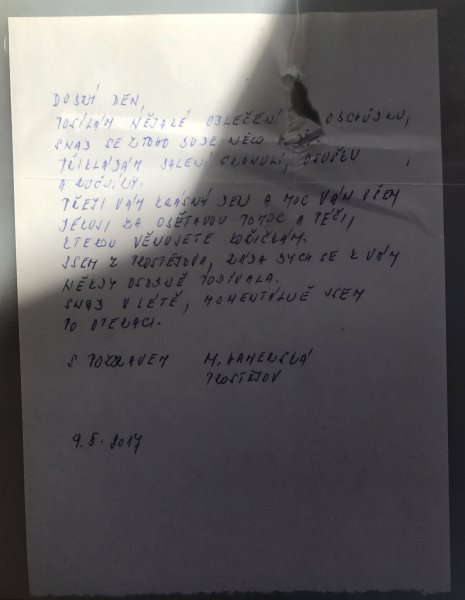 DOBRÝ DEN,
POSÍLÁM NĚJAKÉ OBLEČENÍ OBCHŮDKU,
SNAD SE Z TOHO BUDE NĚCO
PŘIKLÁDÁM BALENÍ GRANULÍ, OSUŠKU
A RUČNÍKY.
PŘEJI VÁM KRÁSNÝ DEN A MOC VÁM VŠEM
DĚKUJI ZA OBĚTAVOU POMOC A PÉČI,
KTEROU VĚNUJETE KOČIČKÁM.
JSEM Z PROSTĚJOVA, RÁDA BYCH SE K VÁM
NĚKDY OSOBNĚ PODÍVALA.
SNAD V LÉTĚ, MOMENTÁLNĚ JSEM
PO OPERACI.
S POZDRAVEM M. KAMENSKÁ
PROSTĚJOV
2017